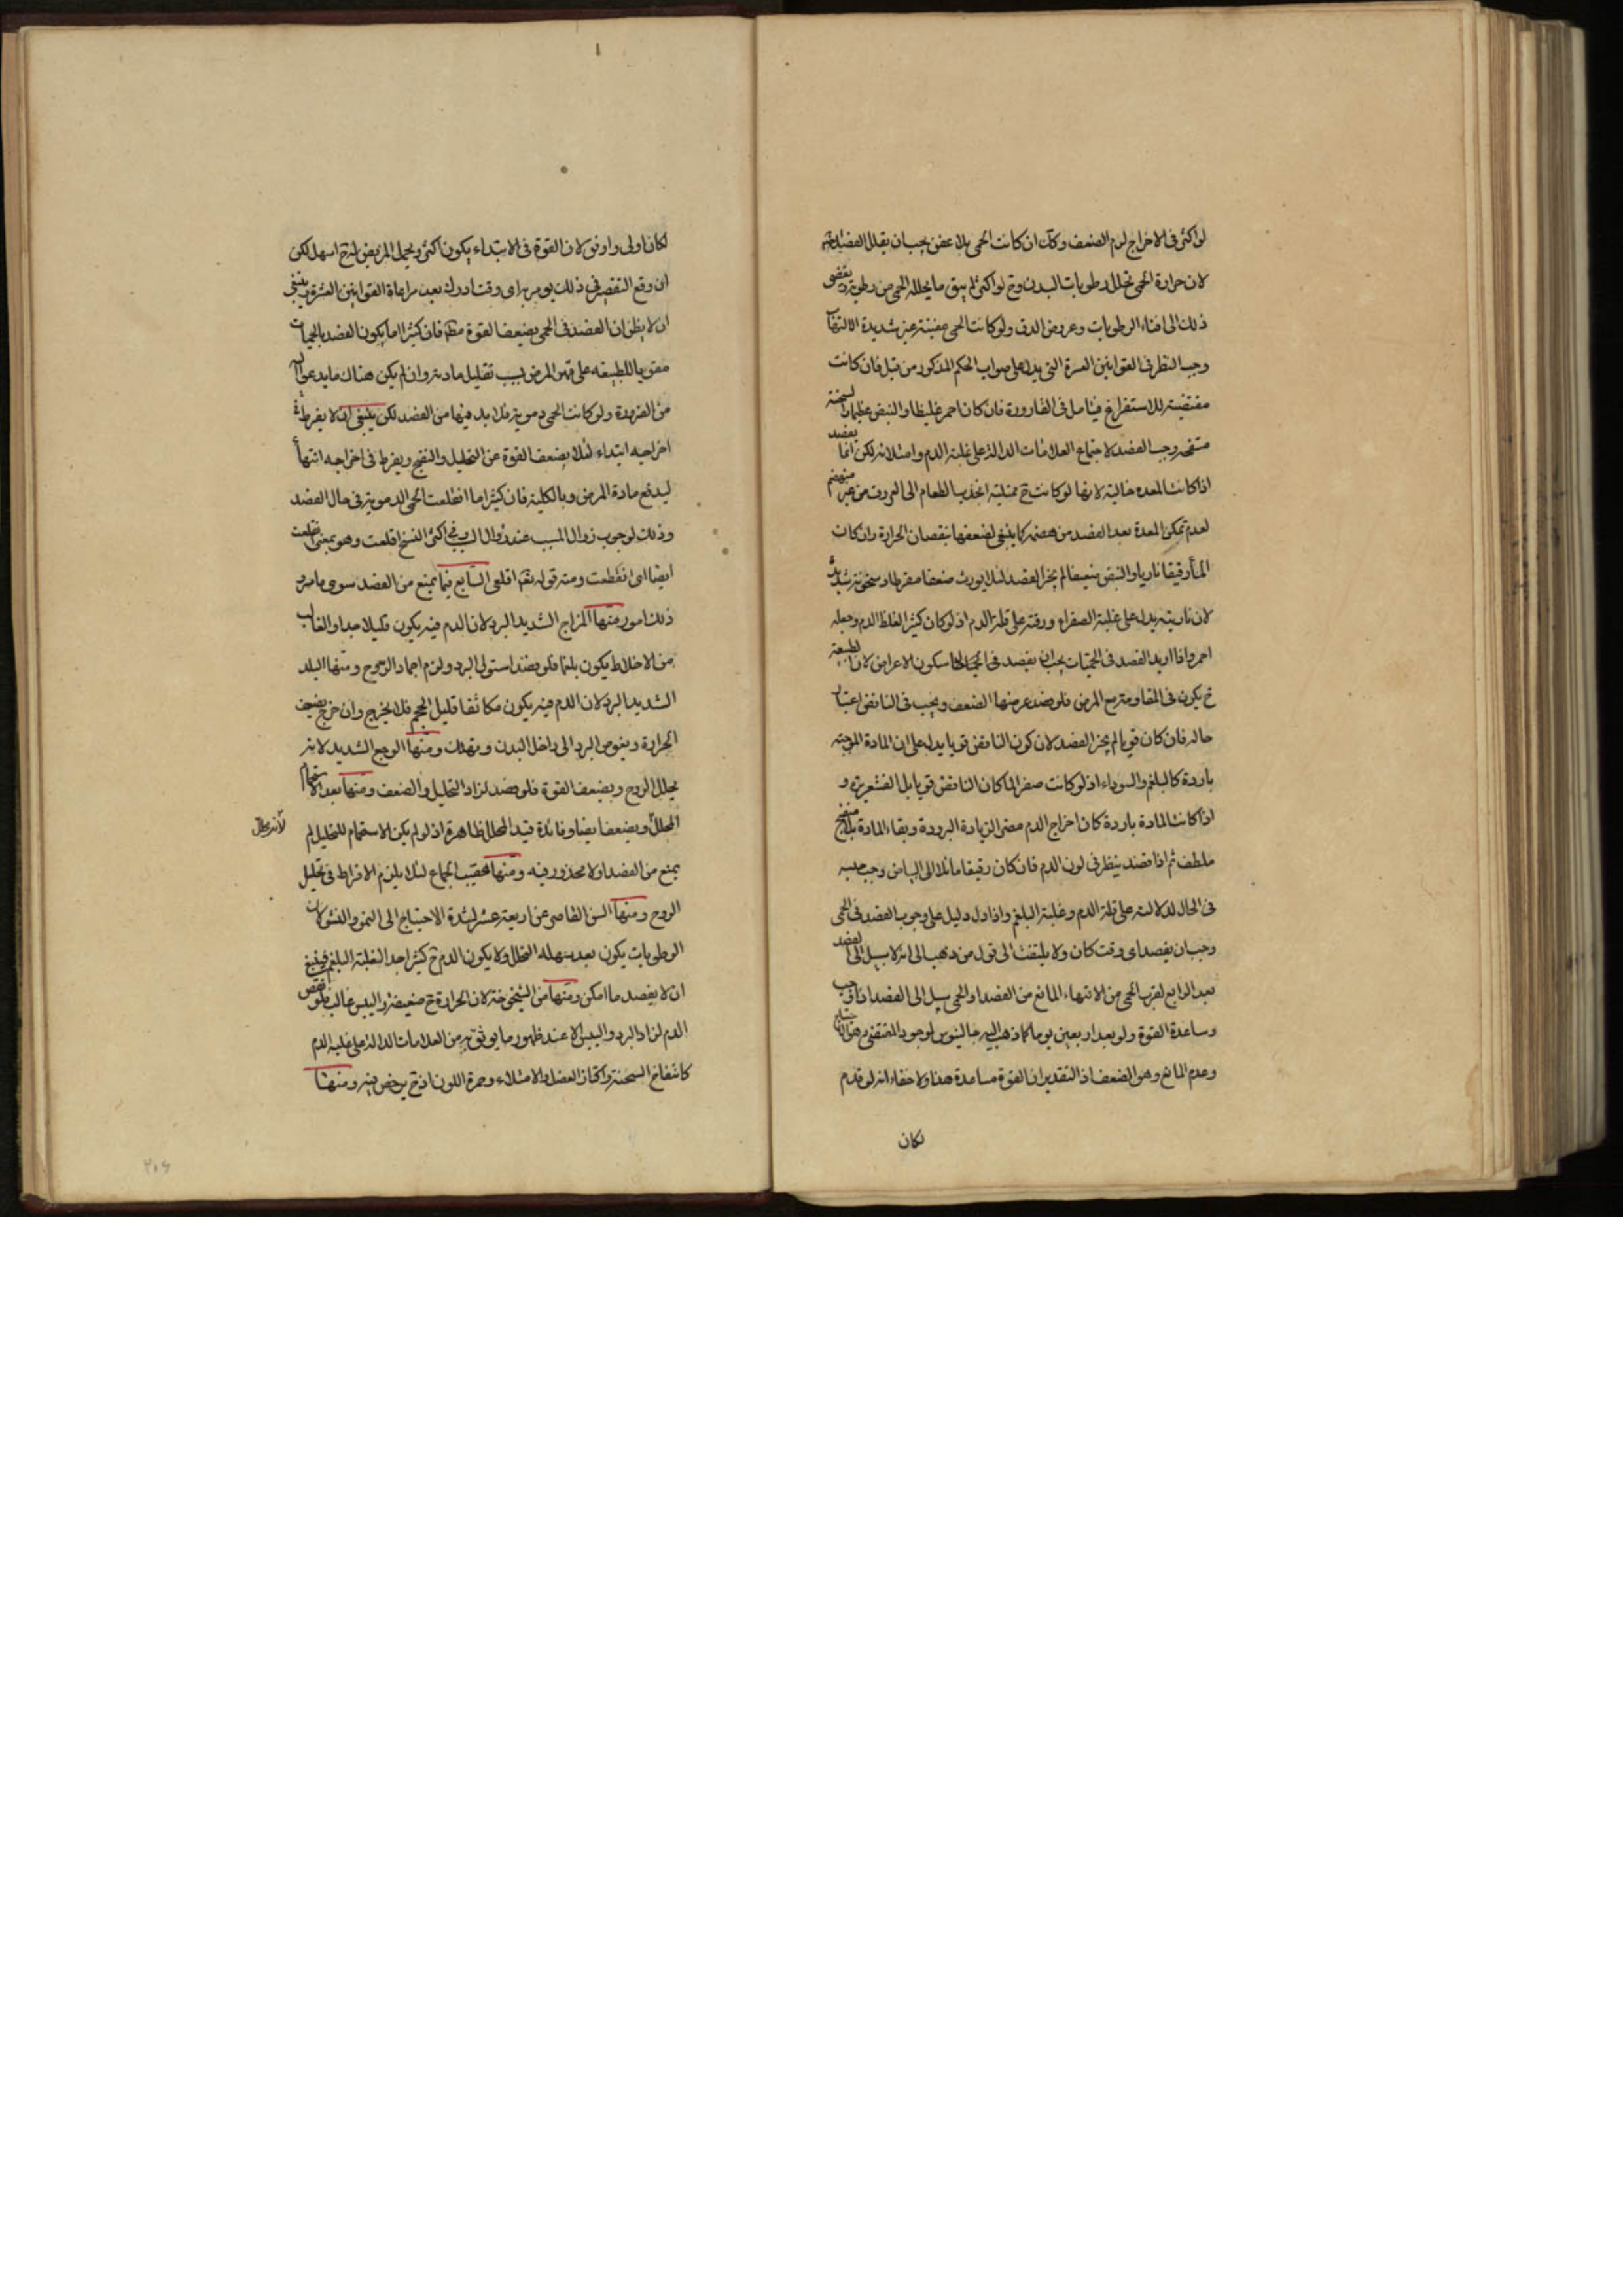 لو اكثر فى الاخراج لزم الضعف وكذلك ان كانت الحمى بلا عفن يجب ان يقلل الفصد
لان حرارة الحمى تحلل رطوبات البدن وح لو اكثر لم يبق ما يحلله الحمى من رطوبته يفضى
ذلك الى افناء الرطوبات وعروض الدق ولو كانت الحمى عفنية غير شديدة الالتهاب
وجب النظر فى القوانين العشرة التى يدل على صواب الحكم المذكور من قبل فان كانت
مقتضية للاستفراغ فيتامل فى القارورة فان كان احمر غليظا والنبض عظيما والسحنة
منتفخه وجب الفصد لاجتماع العلامات الدالة على غلبة الدم وامتلائه لكن انما يفصد
اذا كانت المعده خالية لانها لو كانت ح ممتلية انجذب الطعام الى العروق من غير هضم
لعدم تمكن المعدة بعد الفصد من هضمه كما ينبغى لضعفها بنقصان الحرارة وان كان
الماء رقيقا ناريا والنبض ضعيفا لم يجز الفصد لئلا يورث ضعفا مفرطا وسخونة شديدة
لان ناريته يدل على غلبة الصفراء ورقته على قلة الدم اذ لو كان كثيرا لغلظ الدم وجعله
احمر واذا اريد الفصد فى الحميات يجب ان يفصد فى سكون الاعراض لان الطبيعة
ح يكون فى المقاومة مع المرض فلو فصد عرض منها الضعف ويجب فى النافض اعتبار
حاله فان كان قويا لم يجز الفصد لان كون النافض قويا يدل على ان المادة الموجبة
باردة كالبلغم والسوداء اذ لو كانت صفرا لما كان النافض قويا بل القشعريرة و
اذا كانت المادة باردة كان اخراج الدم مقتضى الزيادة البرودة وبقاء المادة بلا منضج
ملطف ثم اذا فصد ينظر فى لون الدم فان كان رقيقا مائلا الى البياض وجب حبسه
فى الحال لدلالته على قلة الدم وغلبة البلغم واذا دل دليل على وجوب الفصد فى الحمى
وجب ان يفصد اى وقت كان ولا يلتفت الى قول من ذهب الى انه لا سبيل الى الفصد
بعد الرابع لقرب الحمى من الانتهاء المانع من الفصد والحمى سبيل الى الفصد اذا وجب
وساعدة القوة ولو بعد اربعين يوما كما ذهب اليه جالينوس لوجود المقتضى وهو
وعدم المانع وهو الضعف اذ التقدير ان القوة مساعدة هذا ولا خفاء انه لو قدم
لكان
لكان اولى واوفق لان القوة فى الابتداء يكون اكثر وتحمل المريض له ح اسهل لكن
ان وقع التقصير فى ذلك يومر به اى وقت ادرك بعد مراعاة القوانين العشرة وينبغى
ان لا يظن ان الفصد فى الحمى يضعف القوة مطلقا فان كثيرا ما يكون الفصد بالحميات
مقويا للطبيعه على قهر المرض بسبب تقليل مادته وان لم يكن هناك ما يدعو اليه
من الضرورة ولو كانت الحمى دموية فلا بد فيها من الفصد لكن ينبغى ان لا يفرط فى
اخراجه ابتداء لئلا يضعف القوة عن التحليل والنضج ويفرط فى اخراجه انتهاء
ليدفع مادة المرض وبالكلية فان كثيرا ما انقلعت الحمى الدموية فى حال الفصد
وذلك لوجوب زوال المسبب عند زوال السبب وفى اكثر النسخ اقلعت وهو بمعنى انقلعت
ايضا اى انقطعت ومنه قوله تعالى اقلعى السابع فيما يمنع من الفصد سوى ما مر و
ذلك امور منها المزاج الشديد البرد لان الدم فيه يكون قليلا جدا والغالب
من الاخلاط يكون بلغما فلو فصد استولى البرد ولزم اجماد الروح ومنها البلد
الشديد البرد لان الدم فيه يكون متكاثفا قليل الحجم فلا يخرج وان خرج يضعف
الحرارة ويغوص البرد الى داخل البدن ويهلك ومنها الوجع الشديد لانه
يحلل الروح ويضعف القوة فلو فصد لزاد التحليل والضعف ومنها بعد الاستحمام
المحلل ويضعف ايضا وفائدة قيد المحلل ظاهرة اذ لو لم يكن الاستحمام للتحليل لم
لانه يحلل
يمنع من الفصد اذ لا محذور فيه ومنها عقيب الجماع لئلا يلزم الافراط فى تحليل
الروح ومنها السن القاصر عن اربعة عشر لشدة الاحتياج الى النمو والنشو لان
الرطوبات يكون بعد سهلة التحلل ولا يكون الدم ح كثيرا جدا لغلبة البلغم فينبغى
ان لا يفصد ما امكن ومنها سن الشيخوخة لان الحرارة ح ضعيفة واليبس غالب فلو نقص
الدم لزاد البرد واليبس الا عند ظهور ما يوثق به من العلامات الدالة على غلبة الدم
كانتفاخ السحنة واكتناز العضل والامتلاء وحمرة اللون اذ ح يرخص فيه ومنها